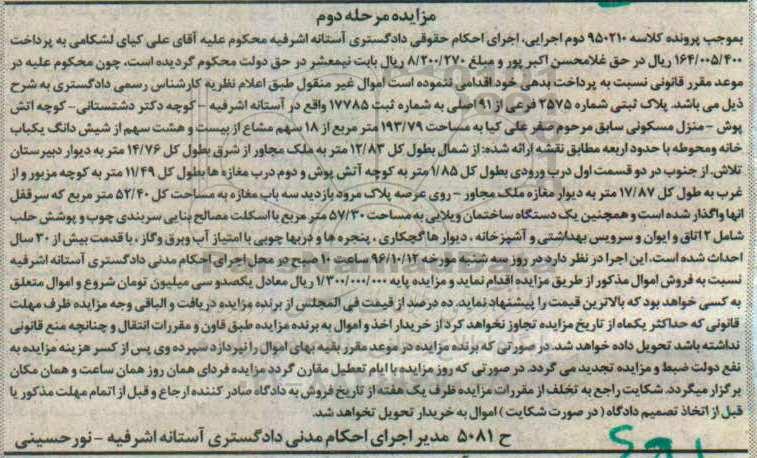 مزایده مرحله دوم
بموجب پرونده کلاسه ۹۵۰۲۱۰ دوم اجرایی، اجرای احکام حقوقی دادگستری آستانه اشرفیه محکوم علیه آقای علی کیای لشکامی به پرداخت
۱۶۴/۰۰۵/۴۰۰ ریال در حق غلامحسن اکبر پور و مبلغ ۸/۲۰۰/۲۷۰ ریال بابت نیمعشر در حق دولت محکوم گردیده است، چون محکوم علیه در
موعد مقرر قانونی نسبت به پرداخت بدهی خود اقدامی ننموده است اموال غیر منقول طبق اعلام نظریه کارشناس رسمی دادگستری به شرح
ذیل می باشد. پلاک ثبتی شماره ۲۵۷۵ فرعی از ۹۱ اصلی به شماره ثبت ۱۷۷۸۵ واقع در آستانه اشرفیه - کوچه دکتر دشتستانی- کوچه آتش
پوش - منزل مسکونی سابق مرحوم صفر علی کیا به مساحت ۱۹۳/۷۹ متر مربع از ۱۸ سهم مشاع از بیست و هشت سهم از شیش دانگ یکباب
خانه ومحوطه با حدود اربعه مطابق نقشه ارائه شده: از شمال بطول کل ۱۲/۸۳ متر به ملک مجاور از شرق بطول کل ۱۴/۷۶ متر به دیوار دبیرستان
تلاش. از جنوب در دو قسمت اول درب ورودی بطول کل ۱/۸۵ متر به کوچه آتش پوش و دوم درب مغازه ها بطول کل ۱۱/۴۹ متر به کوچه مزبور و از
غرب به طول کل ۱۷/۸۷ متر به دیوار مغازه ملک مجاور - روی عرصه پلاک مرود بازدید سه باب مغازه به مساحت کل ۵۲/۴۰ متر مربع که سرقفل
آنها واگذار شده است و همچنین یک دستگاه ساختمان ویلایی به مساحت ۵۷/۳۰ متر مربع با اسکلت مصالح بنایی سربندی چوب و پوشش حلب
شامل ۲ اتاق و ایوان و سرویس بهداشتی و آشپزخانه ، دیوار ها گچکاری ، پنجره ها و دربها چوبی با امتیاز آب وبرق وگاز ، با قدمت بیش از ۳۰ سال
احداث شده است. این اجرا در نظر دارد در روز سه شنبه مورخه ۹۶/۱۰/۱۲ ساعت ۱۰ صبح در محل اجرای احکام مدنی دادگستری آستانه اشرفیه
نسبت به فروش اموال مذکور از طریق مزایده اقدام نماید و مزایده پایه ۱/۳۰۰/۰۰۰/۰۰۰ ریال معادل یکصدو سی میلیون تومان شروع و اموال متعلق
به کسی خواهد بود که بالاترین قیمت را پیشنهاد نماید. ده درصد از قیمت فی المجلس از برنده مزایده دریافت و الباقی وجه مزایده ظرف مهلت
قانونی که حداکثر یکماه از تاریخ مزایده تجاوز نخواهد کرد از خریدار اخذ و اموال به برنده مزایده طبق قاون و مقررات انتقال و چنانچه منع قانونی
نداشته باشد تحویل داده خواهد شد. در صورتی که برنده مزایده در موعد مقرر بقیه بهای اموال را نپردازد سپرده وی پس از کسر هزینه مزایده به
نفع دولت ضبط و مزایده تجدید می گردد. در صورتی که روز مزایده با ایام تعطیل مقارن گردد مزایده فردای همان روز همان ساعت و همان مکان
برگزار میگردد. شکایت راجع به تخلف از مقررات مزایده ظرف یک هفته از تاریخ فروش به دادگاه صادر کننده ارجاع و قبل از اتمام مهلت مذکور یا
قبل از اتخاذ تصمیم دادگاه ( در صورت شکایت ) اموال به خریدار تحویل نخواهد شد.
ح ۵۰۸۱ مدیر اجرای احکام مدنی دادگستری آستانه اشرفیه - نورحسینی